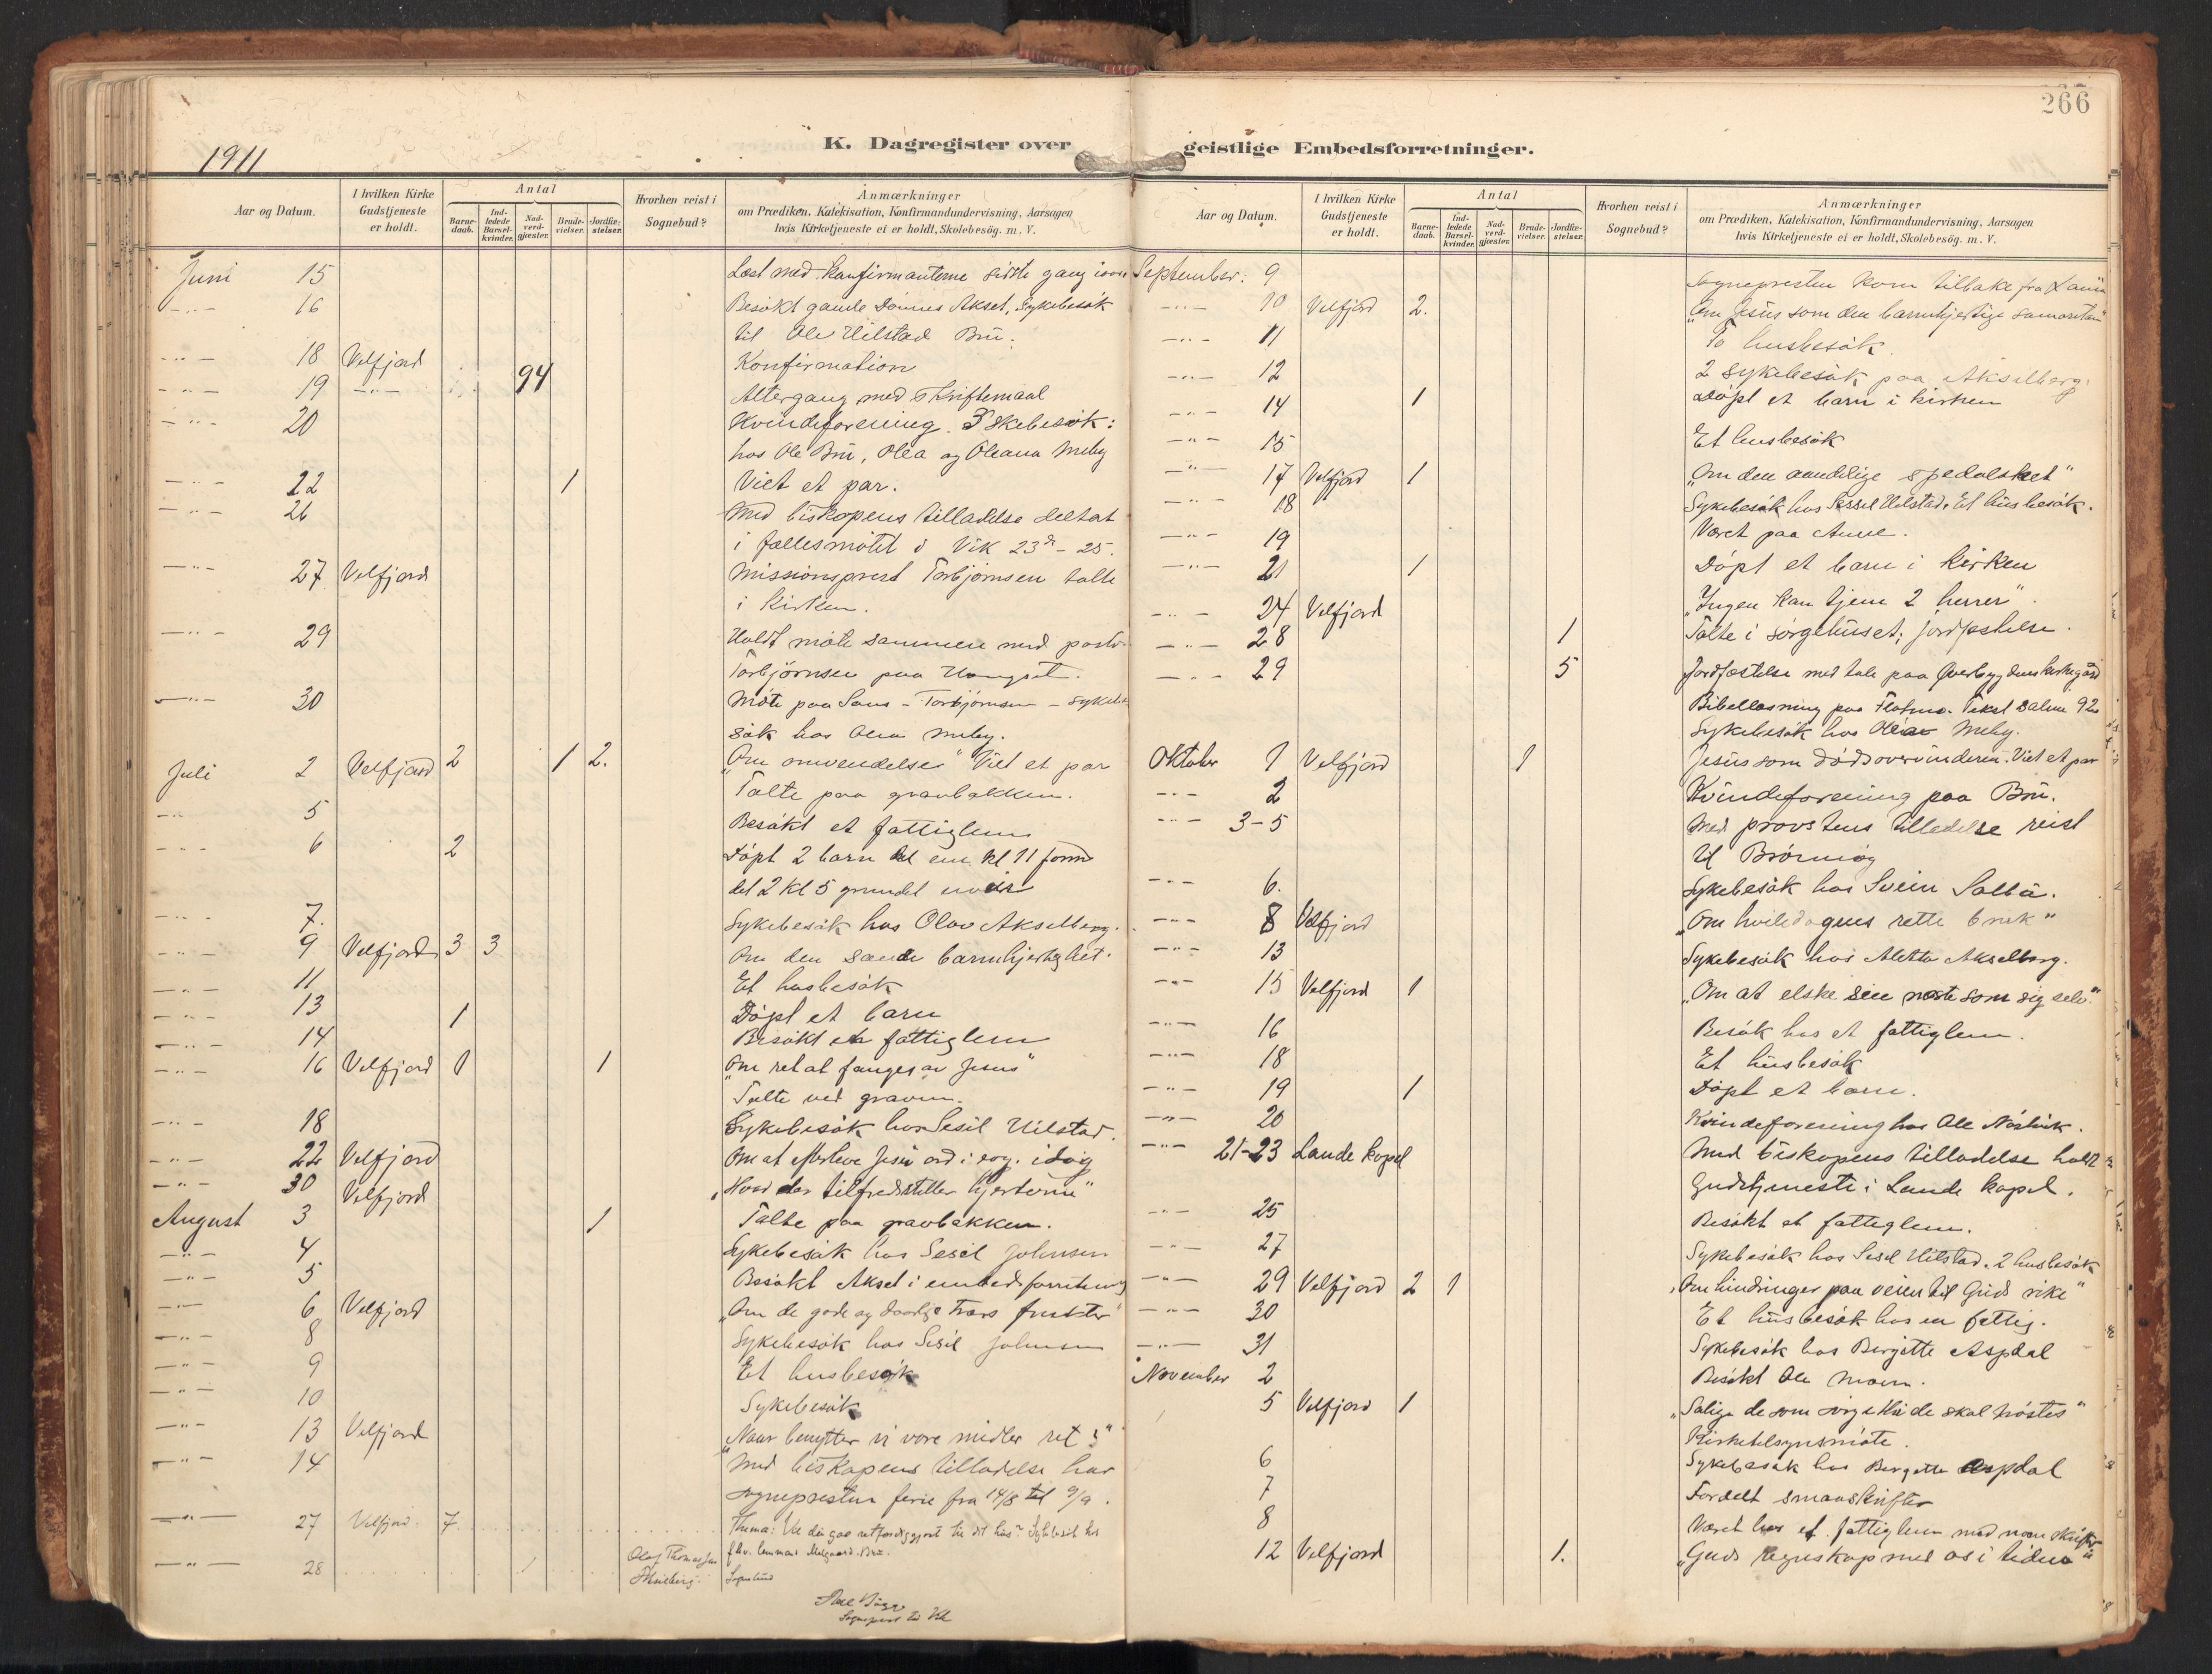 266
K. Dagregister over geistlige Embedsforretninger.
1911
Aar og Datum.
I hvilken Kirke Gudstjeneste er holdt.
Antal
Barne-daab.
Ind-ledede Barsel-kvinder.
Nad-verd-gjæster.
Brude-vielser.
Jordfæ-stelser.
Hvorhen reist i Sognebud?
Anmærkninger
om Prædiken, Katekisation, Konfirmandundervisning, Aarsagen
hvis Kirketjeneste ei er holdt, Skolebesög. m. V.
Juni 15 Læst med konfirmanterne sidste gang
-"- 16 Besökt gamle Aksel, Sykebesök
til Ole Hilstad Bru.
-"- 18 Velfjord Konfirmation
-"- 19 -"- 94 Altergang med skriftemaal
-"- 20 Kvindeforening. 3 :
hos Ole Bru, Olea og Oleana Meby
-"- 22 1 Viet et par.
-"- 26 Med biskopens tilladelse deltat
i fællesmötet i Vik 23de - 25.
-"- 27 Velfjord Missionsprest Torbjörnsen talte
i kirken.
-"- 29 Holdt möte sammen med pastor
Torbjörnsen paa
-"- 30 Möte paa Saus - Torbjörnsen - sykebe
sök hos Olea Meby.
Juli 2 Velfjord 2 1 2. "Om omvendelse" Viet et par
Talte paa gravbakken.
-"- 5 Besökt et fattiglem
-"- 6 2 Döpt 2 barn det ene kl 11 form
det 2 kl 5 grundet
-"- 7. Sykebesök hos Olav Akselberg.
-"- 9 Velfjord 3 3 Om den sande barmhjertighet.
-"- 11 Et husbesök
-"- 13 1 Döpt et barn
-"- 14 Besökt et fattiglem
-"- 16 Velfjord 1 1 "Om ret at fanges av Jesus"
Talte ved graven.
-"- 18 Sykebesök hos Sesil Hilstad.
-"- 22 Velfjord Om at efterleve Jesu ord i dag
-"- 30 Velfjord "Hvad der tilfredsstiller hjerterne"
August 3 1 Talte paa gravbakken.
-"- 4 Sykebesök hos Sesil Johnsen
-"- 5 Besökt Aksel i embedsforretning
-"- 6 Velfjord "Om de gode og daarlige træs frukter"
-"- 8 Sykebesök hos Sesil Johnsen
-"- 9 Et husbesök
-"- 10 Sykebesök
-"- 13 Velfjord "Naar benytter vi vore midler ret?"
-"- 14 Med biskopens tilladelse har
sogneprestn ferie fra 14/8 til 9/9.
-"- 27 Velfjord. 7. Thema: retfærdiggjort til dit hus? Sykebesök hos
-"- 28 Olaf Thomassen
Akselberg. Sognebud
Aar og Datum.
I hvilken Kirke Gudstjeneste er holdt.
Antal
Barne-daab.
Ind-ledede Barsel-kvinder.
Nad-verd-gjæster.
Brude-vielser.
Jordfæ-stelser.
Hvorhen reist i Sognebud?
Anmærkninger
om Prædiken, Katekisation, Konfirmandundervisning, Aarsagen
hvis Kirketjeneste ei er holdt, Skolebesög. m. V.
September. 9 Sognepresten kom tilbake fra
-"- 10 Velfjord 2. "Om Jesus som den barmhjertige samaritan"
-"- 11 To husbesök.
-"- 12 2 sykebesök paa Akselberg.
-"- 14 1 Döpt et barn i kirken
-"- 15 Et husbesök
-"- 17 Velfjord 1 "Om den aandelige spedalskhet"
-"- 18 Sykebesök hos Sessel Hilstad. Et husbesök.
-"- 19 Været paa Aune.
-"- 21 1 Döpt et barn i kirken
-"- 24 Velfjord "Ingen kan tjene 2 herrer".
-"- 28 1 Talte i sörgehuset; jordfæstelse.
-"- 29 5 Jordfæstelse med tale paa Överbygdens kirkegård
Bibellæsning paa Flotmo. Tekst Salme 92
Sykebesök hos Olea Meby.
Oktober 1 Velfjord 1 Jesus som dödsovervinderen. Viet et par
-"- 2 Kvindeforening paa Bru.
-"- 3-5 Med provstens tilladelse reist
til Brönnöy
-"- 6. Sykebesök hos Svein Saltbu.
-"- 8 Velfjord "Om hviledagens rette bruk"
-"- 13 Sykebesök hos Aletta Akselberg.
-"- 15 Velfjord 1 "Om at elske sin næste som sig selv."
-"- 16 Besök hos et fattiglem.
-"- 18 Et husbesök
-"- 19 1 Döpt et barn.
-"- 20 Kvindeforening hos Ole
-"- 21-23 Lande kapel Med biskopens tilladelse holdt
Gudstjeneste i Lande kapel.
-"- 25 Besökt et fattiglem.
-"- 27 Sykebesök hos Sesil Hilstad. 2 husbesök
-"- 29 Velfjord 2 1 "Om hindringer paa veien til Guds rike"
-"- 30 Et husbesök hos en fattig.
-"- 31 Sykebesök hos Bergitte Aspdal
November 2 Besökt Ole Moen.
5 Velfjord 1 "Salige de som sörge thi de skal tröstes"
Kirketilsynsmöte.
6 Sykebesök hos Bergitte Aspdal
7 Fordelt smaaskrifter
8 Været hos et fattiglem med noen skrifter
12 Velfjord 1. "Guds regnskap med os i tiden"